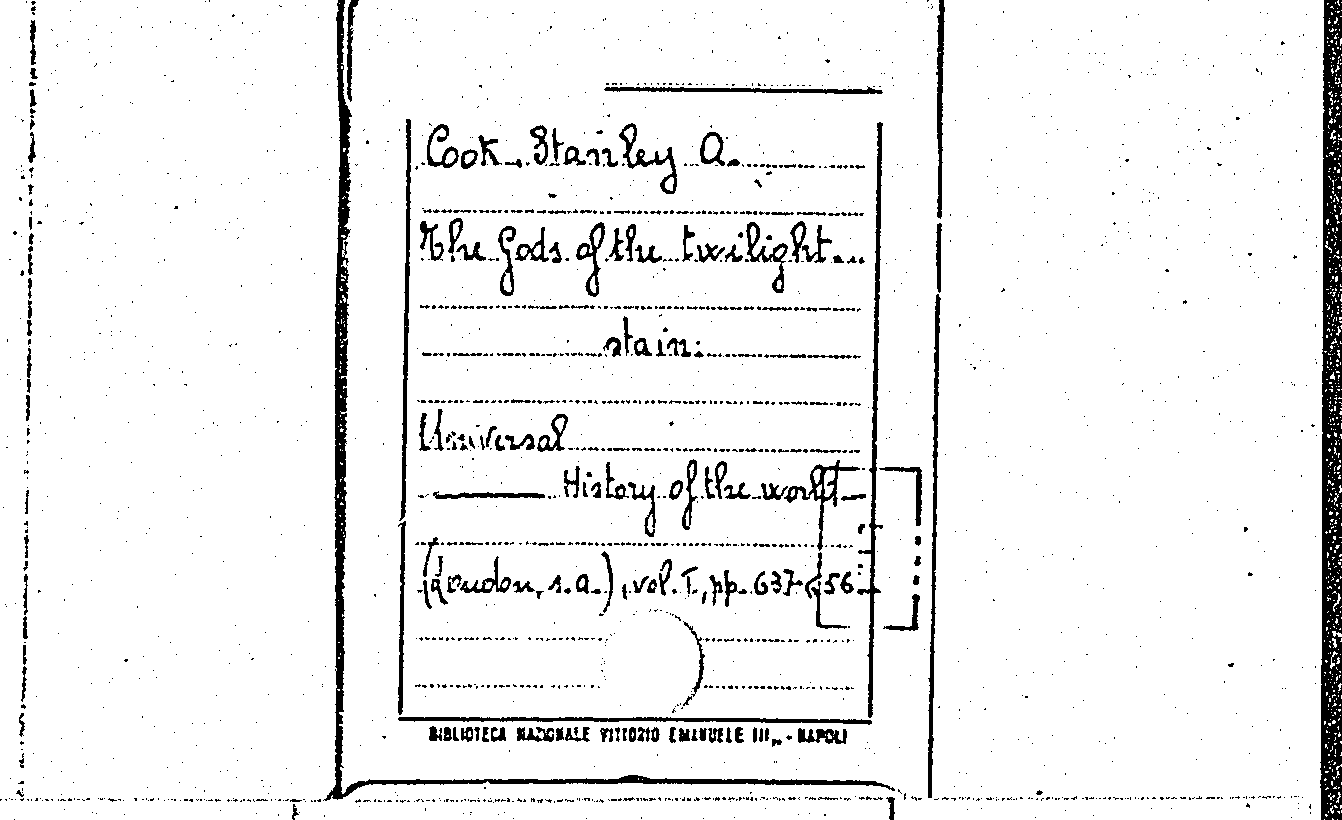 Cook, Stanley A.
The Gods of the twilight...
stain:
Universal
History of the world
(London, s.a.), vol. I, pp. 637-656.
BIBLIOTECA NAZIONALE VITTORIO EMANUELE III,, - NAPOLI